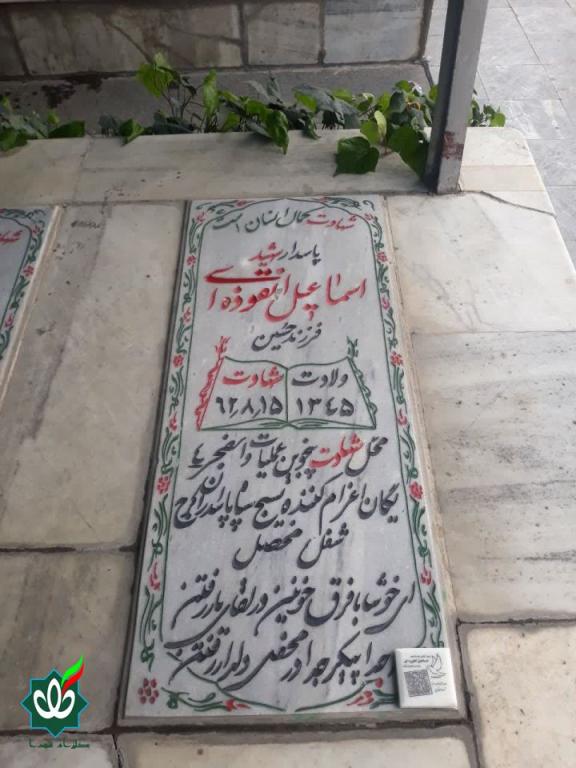 شهادت کمال انسان است
پاسدار شهید
اسماعیل انقوذه‌ای
فرزند حسین
ولادت شهادت
۱۳۴۵ ۶۲٫۸٫۱۵
محل شهادت پنجوین عملیات والفجر ۴
یگان اعزام کننده بسیج سپاه پاسداران کرج
شغل محصل
ای خوشا با فرق خونین در لقای یار رفتن
سر جدا پیکر جدا در محفل دلدار رفتن